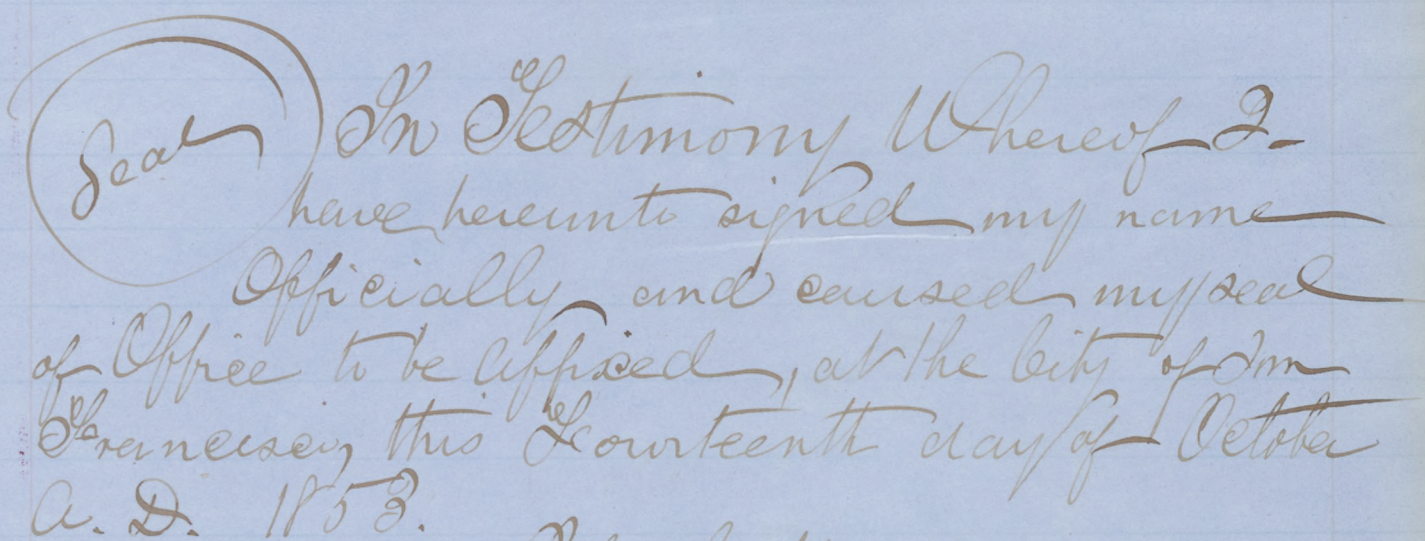 Seal
In Testimony Whereof I
have hereunto signed my name
Officially and caused my seal
of Office to be affixed, at the City of San
Francisco, this Fourteenth day of October
A. D. 1853.